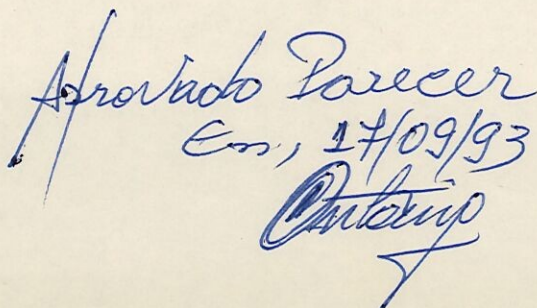 Aprovado Parecer
Em, 17/09/93
Antonio